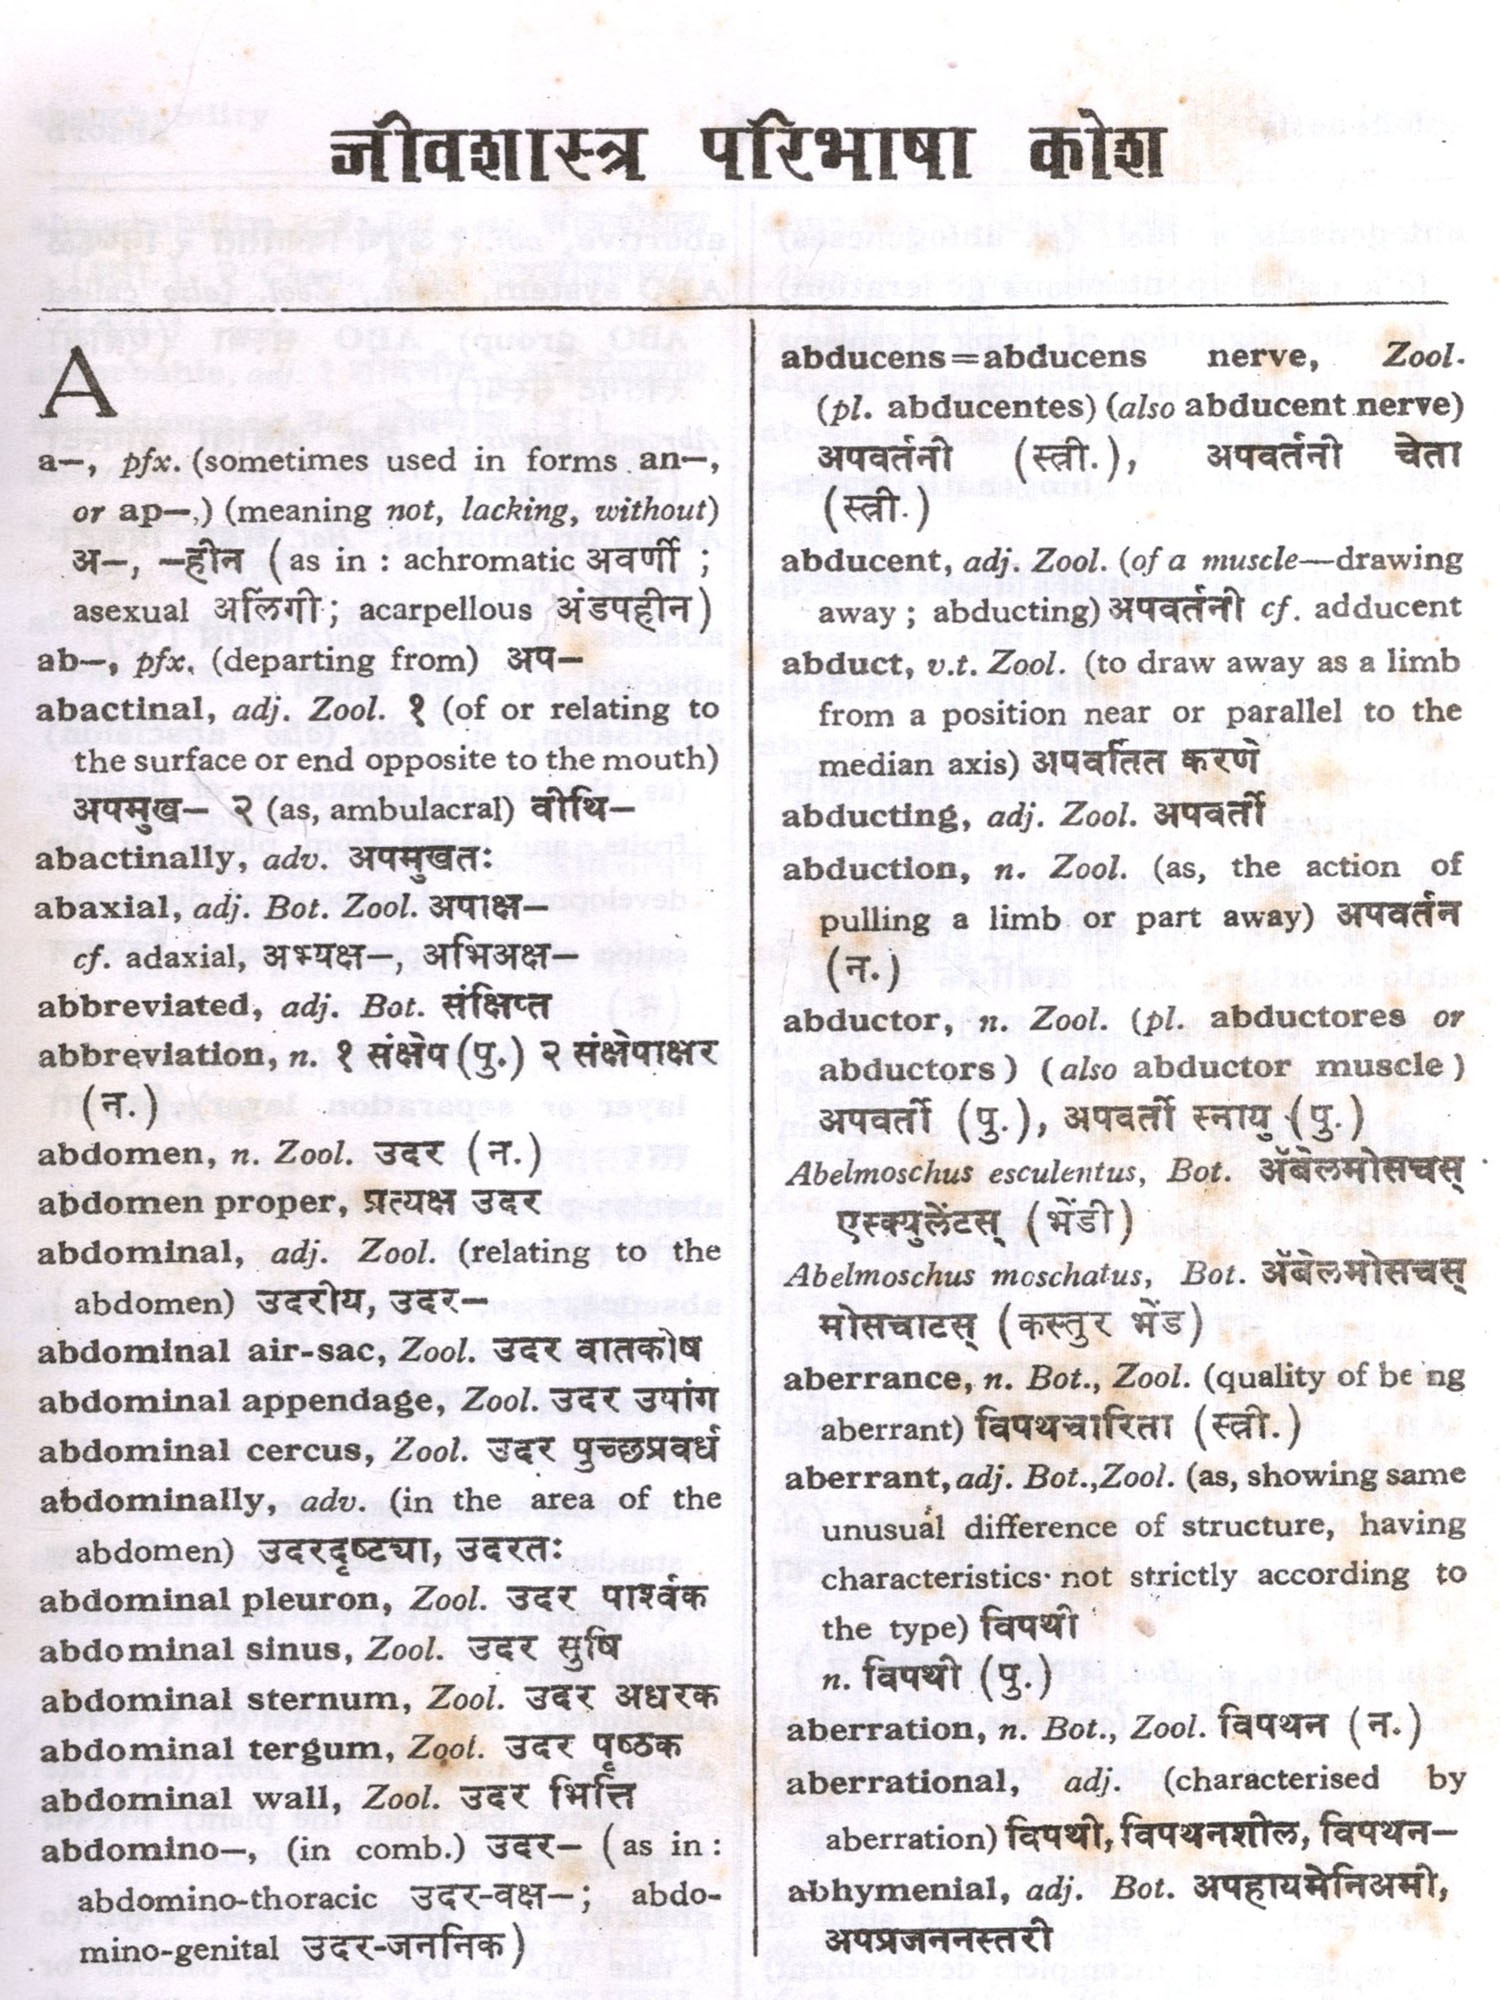 जीवशास्त्र परिभाषा कोश
A
a—, pfx. (sometimes used in forms an—,
or ap—,) (meaning not, lacking, without)
अ—, —हीन (as in : achromatic अवर्णी ;
asexual अलिंगी ; acarpellous अंडपहीन)
ab—, pfx. (departing from) अप—
abactinal, adj. Zool. १ (of or relating to
the surface or end opposite to the mouth)
अपमुख— २ (as, ambulacral) वीथि—
abactinally, adv. अपमुखतः
abaxial, adj. Bot. Zool. अपाक्ष—
cf. adaxial, अभ्यक्ष—, अभिअक्ष—
abbreviated, adj. Bot. संक्षिप्त
abbreviation, n. १ संक्षेप (पु.) २ संक्षेपाक्षर
(न.)
abdomen, n. Zool. उदर (न.)
abdomen proper, प्रत्यक्ष उदर
abdominal, adj. Zool. (relating to the
abdomen) उदरीय, उदर—
abdominal air-sac, Zool. उदर वातकोष
abdominal appendage, Zool. उदर उपांग
abdominal cercus, Zool. उदर पुच्छप्रवर्ध
abdominally, adv. (in the area of the
abdomen) उदरदृष्ट्या, उदरतः
abdominal pleuron, Zool. उदर पार्श्वक
abdominal sinus, Zool. उदर सुषि
abdominal sternum, Zool. उदर अधरक
abdominal tergum, Zool. उदर पृष्ठक
abdominal wall, Zool. उदर भित्ति
abdomino—, (in comb.) उदर— (as in :
abdomino-thoracic उदर-वक्ष—; abdo-
mino-genital उदर-जननिक)
abducens=abducens nerve, Zool.
(pl. abducentes) (also abducent nerve)
अपवर्तनी (स्त्री.), अपवर्तनी चेता
(स्त्री.)
abducent, adj. Zool. (of a muscle—drawing
away ; abducting) अपवर्तनी cf. adducent
abduct, v.t. Zool. (to draw away as a limb
from a position near or parallel to the
median axis) अपवर्तित करणे
abducting, adj. Zool. अपवर्ती
abduction, n. Zool. (as, the action of
pulling a limb or part away) अपवर्तन
(न.)
abductor, n. Zool. (pl. abductores or
abductors) (also abductor muscle)
अपवर्ती (पु.), अपवर्ती स्नायु (पु.)
Abelmoschus esculentus, Bot. ॲबेलमोसचस्
एस्क्युलेंटस् (भेंडी)
Abelmoschus moschatus, Bot. ॲबेलमोसचस्
मोसचाटस् (कस्तुर भेंड)
aberrance, n. Bot., Zool. (quality of being
aberrant) विपथचारिता (स्त्री.)
aberrant, adj. Bot., Zool. (as, showing same
unusual difference of structure, having
characteristics not strictly according to
the type) विपथी
n. विपथी (पु.)
aberration, n. Bot., Zool. विपथन (न.)
aberrational, adj. (characterised by
aberration) विपथी, विपथनशील, विपथन—
abhymenial, adj. Bot. अपहायमेनिअमी,
अपप्रजननस्तरी